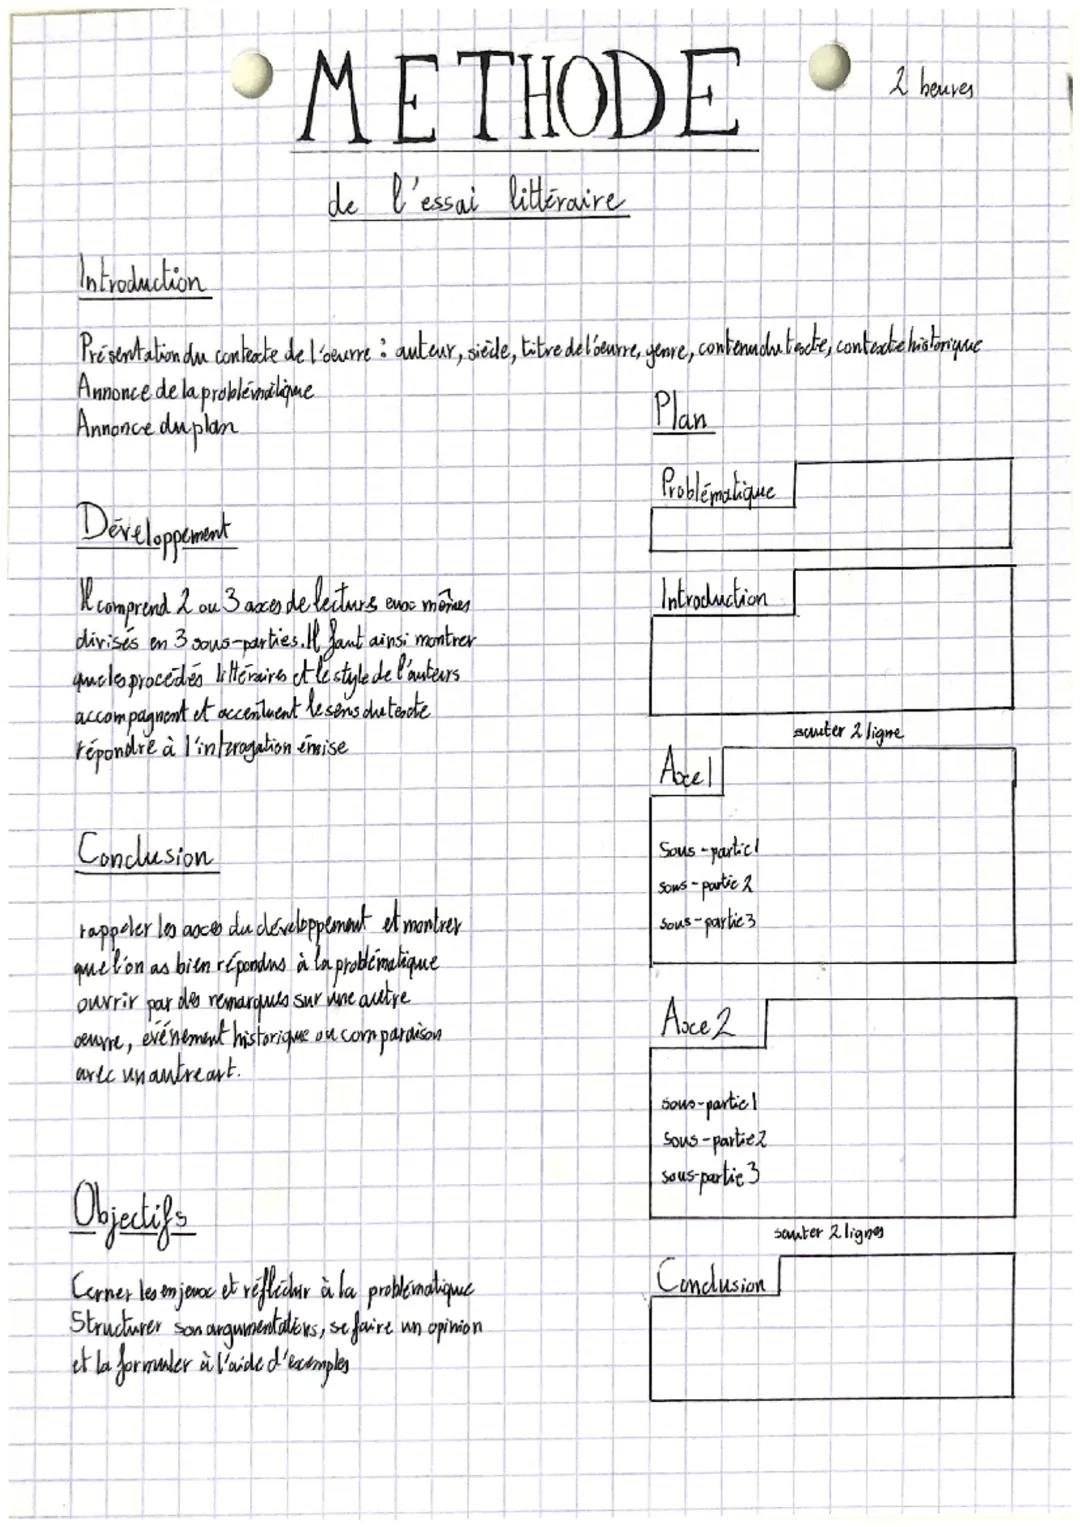 METHODE
2 heures
de l'essai littéraire
Introduction
Présentation du contexte de l'oeuvre : auteur, siècle, titre de l'oeuvre, genre, contenu du texte, contexte historique
Annonce de la problématique
Annonce du plan
Développement
Il comprend 2 ou 3 axes de lecture eux mêmes
divisés en 3 sous-parties. Il faut ainsi montrer
que les procédés littéraires et le style de l'auteurs
accompagnent et accentuent le sens du texte
répondre à l'interogation émise
Conclusion
rappeler les axes du développement et montrer
que l'on as bien répondus à la problématique
ouvrir par des remarques sur une autre
oeuvre, événement historique ou comparaison
avec un autre art.
Objectifs
Cerner les enjeux et réfléchir à la problématique
Structurer son argumentations, se faire un opinion
et la formuler à l'aide d'exemples
Plan
Problématique
Introduction
sauter 2 ligne
Axe 1
Sous-partie 1
sous-partie 2
sous-partie 3
Axe 2
sous-partie 1
sous-partie 2
sous-partie 3
sauter 2 lignes
Conclusion